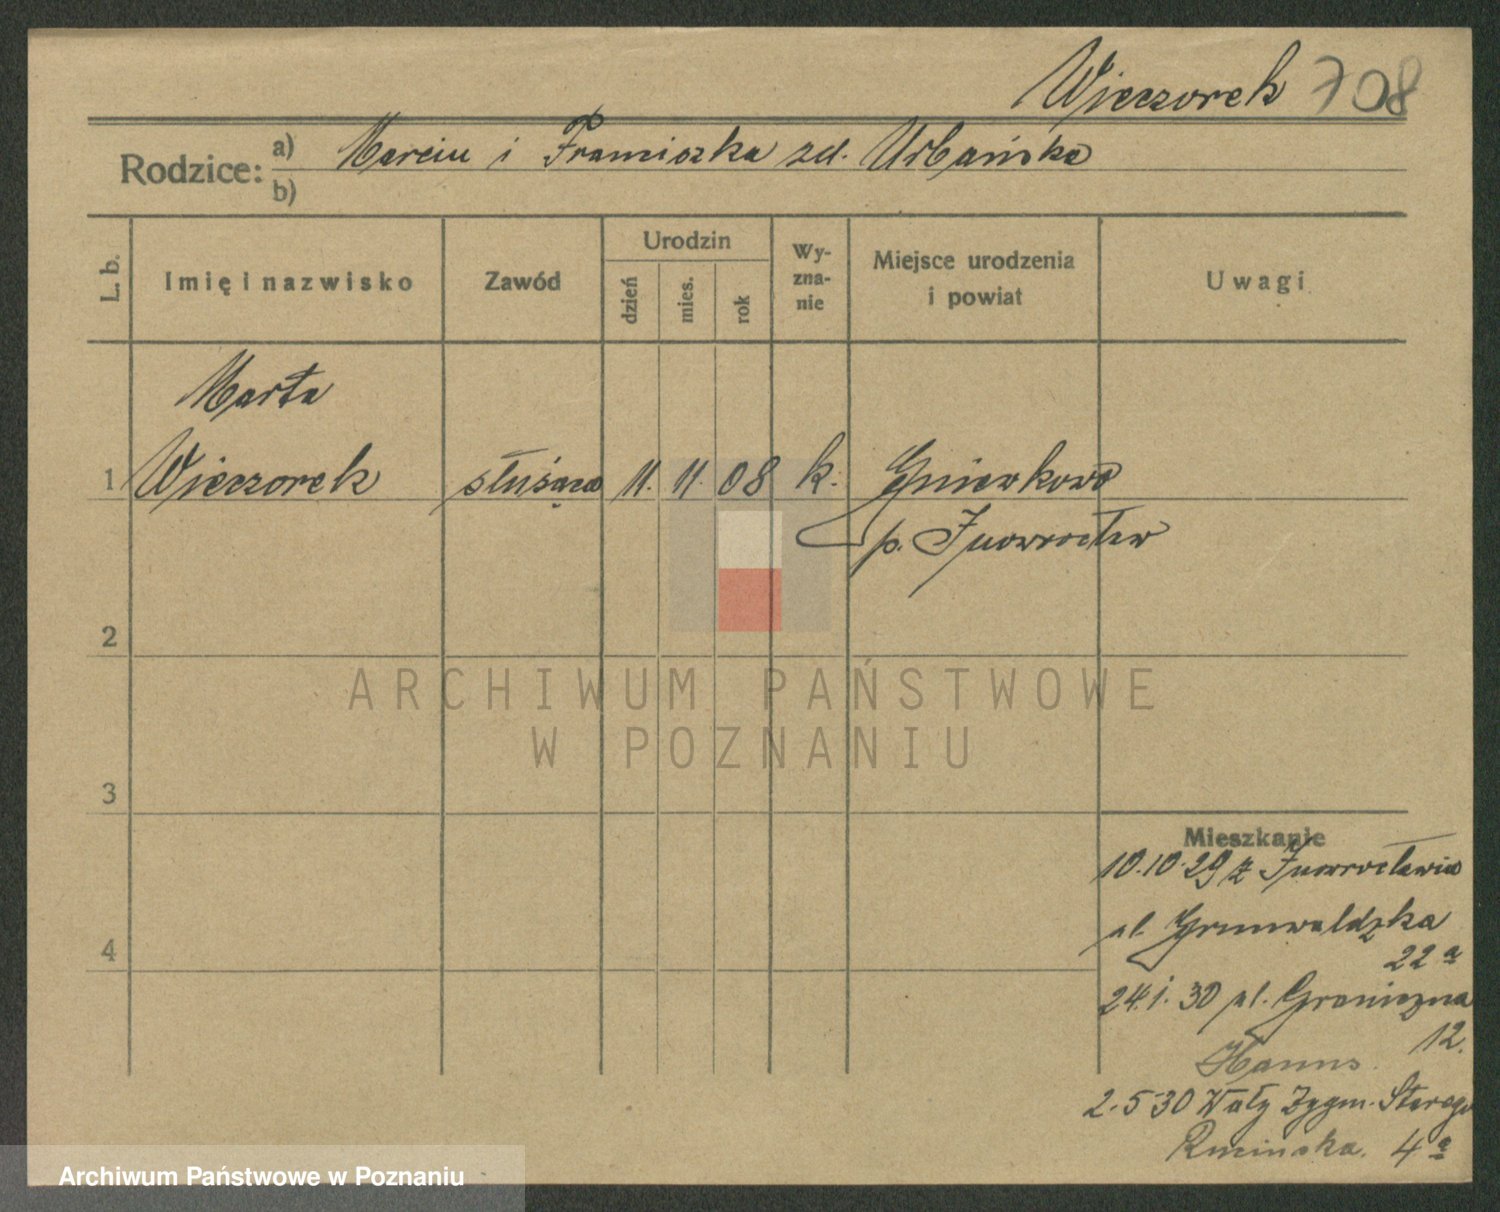 Wieczorek 708
Rodzice: a) Marcin i Franciszka zd. Urbańska
b)
L. b. Imię i nazwisko Zawód Urodzin dzień mies. rok Wy-zna-nie Miejsce urodzenia i powiat Uwagi
Marta
1 Wieczorek służąca 11. 11. 08 k. Gniewkowo
p. Inowrocław
2
ARCHIWUM PAŃSTWOWE
W POZNANIU
3
Mieszkanie
10.10.29 z Inowrocławia
ul. Grunwaldzka
22a
4
24.1.30 ul. Graniczna
12.
Hanns.
2.5.30 Wały Zygm. Starego
4a
Archiwum Państwowe w Poznaniu